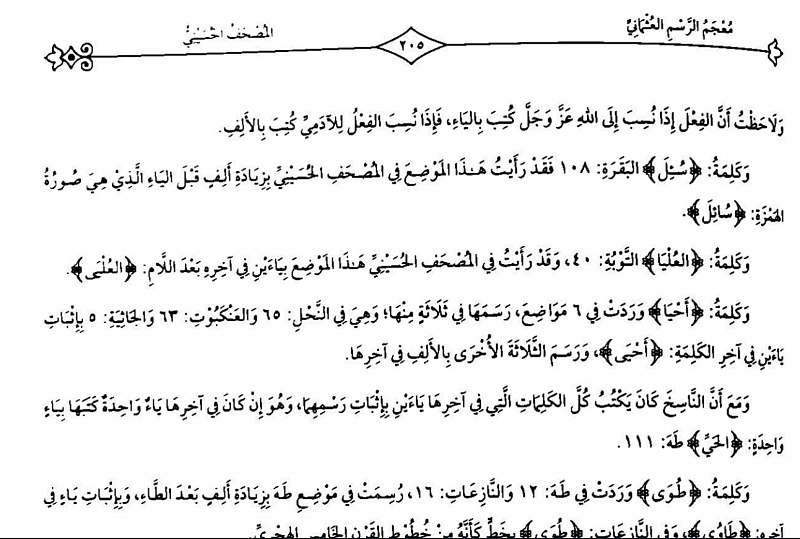 مُعْجَمُ الرَّسْمِ العُثْمَانِيِّ
٢٠٥
المُصْحَفُ الحُسَيْنِيُّ
وَلَاحَظْتُ أَنَّ الفِعْلَ إِذَا نُسِبَ إِلَى اللهِ عَزَّ وَجَلَّ كُتِبَ بِاليَاءِ، فَإِذَا نُسِبَ الفِعْلُ لِلآدَمِيِّ كُتِبَ بِالأَلِفِ.
وَكَلِمَةُ: ﴿سُئِلَ﴾ البَقَرَةِ: ١٠٨ فَقَدْ رَأَيْتُ هَـٰذَا المَوْضِعَ فِي المُصْحَفِ الحُسَيْنِيِّ بِزِيَادَةِ أَلِفٍ قَبْلَ اليَاءِ الَّذِيْ هِيَ صُوْرَةُ
الهَمْزَةِ: ﴿سُائِلَ﴾.
وَكَلِمَةُ: ﴿العُلْيَا﴾ التَّوْبَةِ: ٤٠، وَقَدْ رَأَيْتُ فِي المُصْحَفِ الحُسَيْنِيِّ هَـٰذَا المَوْضِعَ بِيَاءَيْنِ فِي آخِرِهِ بَعْدَ اللَّامِ: ﴿العُلْيَى﴾.
وَكَلِمَةُ: ﴿أَحْيَا﴾ وَرَدَتْ فِي ٦ مَوَاضِعَ، رَسَمَهَا فِي ثَلَاثَةٍ مِنْهَا؛ وَهِيَ فِي النَّحْلِ: ٦٥ وَالعَنْكَبُوْتِ: ٦٣ وَالجَاثِيَةِ: ٥ بِإِثْبَاتِ
يَاءَيْنِ فِي آخِرِ الكَلِمَةِ: ﴿أَحْيَى﴾، وَرَسَمَ الثَّلَاثَةَ الأُخْرَى بِالأَلِفِ فِي آخِرِهَا.
وَمَعَ أَنَّ النَّاسِخَ كَانَ يَكْتُبُ كُلَّ الكَلِمَاتِ الَّتِي فِي آخِرِهَا يَاءَيْنِ بِإِثْبَاتِ رَسْمِهِمَا، وَهُوَ إِنْ كَانَ فِي آخِرِهَا يَاءٌ وَاحِدَةٌ كَتَبَهَا بِيَاءٍ
وَاحِدَةٍ: ﴿الحَيِّ﴾ طَهَ: ١١١.
وَكَلِمَةُ: ﴿طُوَى﴾ وَرَدَتْ فِي طَهَ: ١٢ وَالنَّازِعَاتِ: ١٦، رُسِمَتْ فِي مَوْضِعِ طَهَ بِزِيَادَةِ أَلِفٍ بَعْدَ الطَّاءِ، وَبِإِثْبَاتِ يَاءٍ فِي
آخِرِهِ: ﴿طَاوُى﴾، وَفِي النَّازِعَاتِ: ﴿طُوَى﴾ بِخَطٍّ كَأَنَّهُ مِنْ خُطُوْطِ القَرْنِ الخَامِسِ الهِجْرِيِّ.